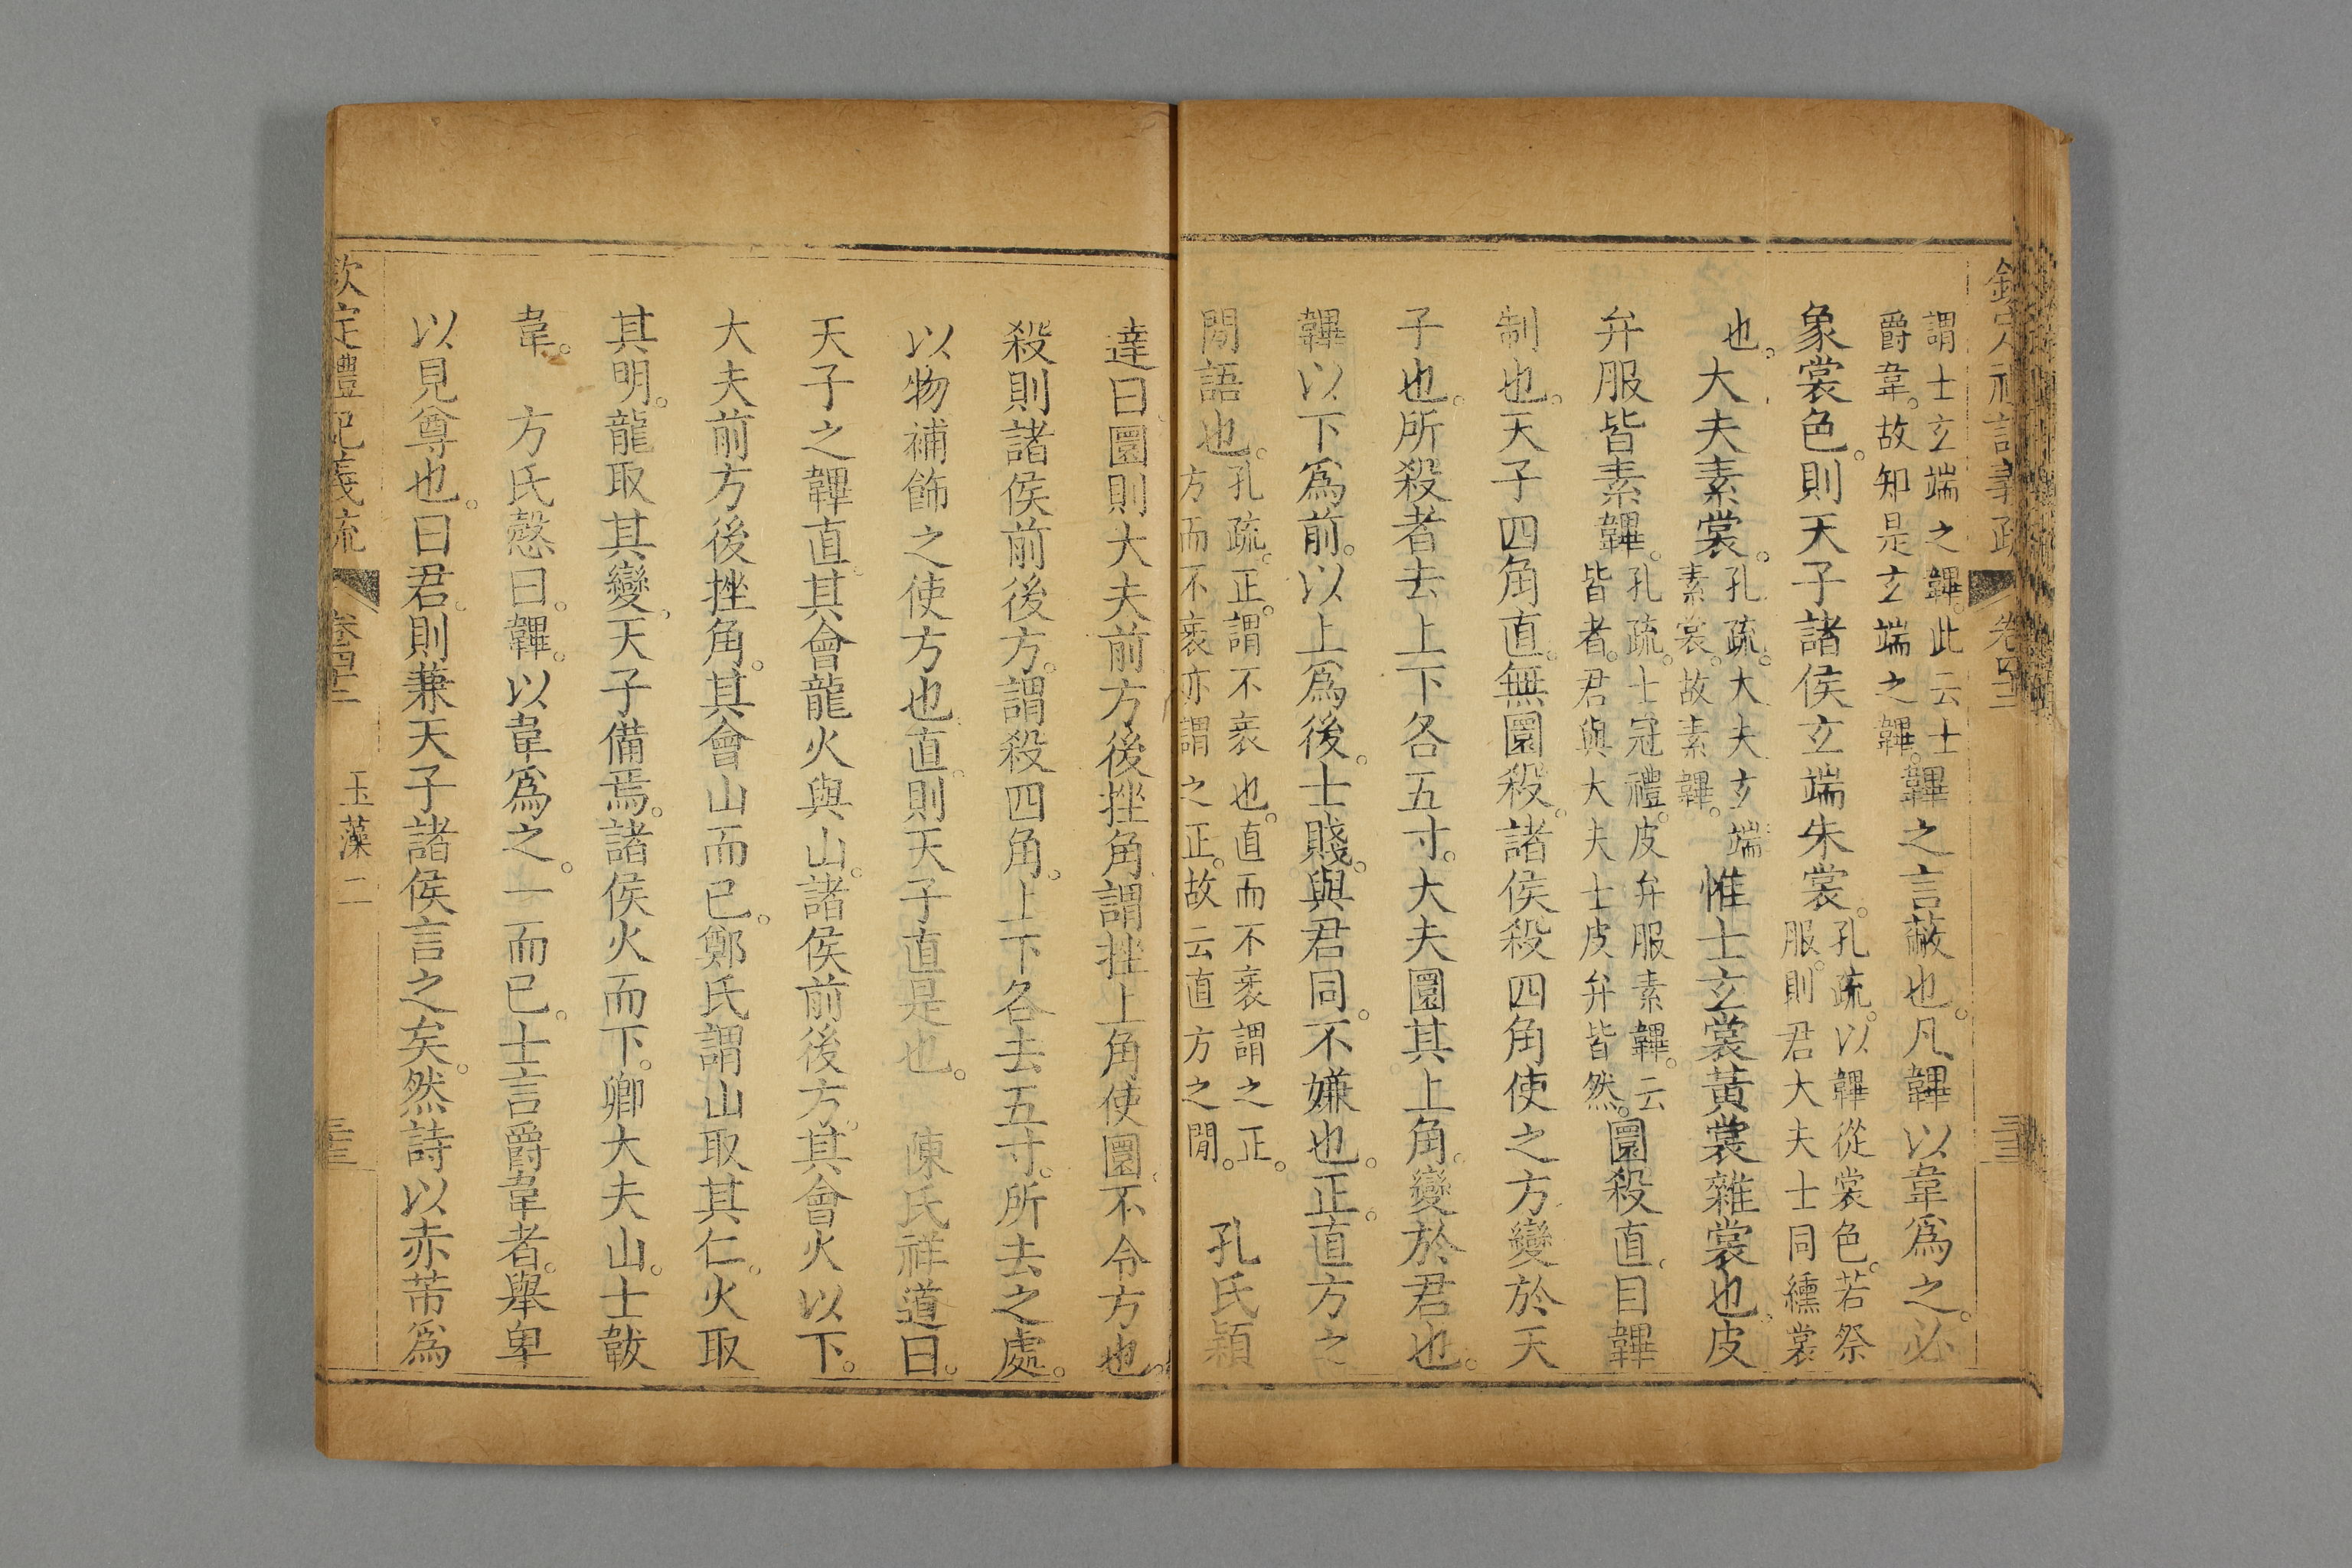 謂士玄端之韠此云士
爵韋。故知是玄端之韠。韠之言蔽也。凡韠以韋爲之。必
象裳色。則天子諸侯玄端朱裳。孔疏。以韠從裳色。若祭
服。則君大夫士同纁裳
也。大夫素裳。孔疏。大夫玄端
素裳。故素韠。惟士玄裳黃裳雜裳也。皮
弁服皆素韠。孔疏。士冠禮。皮弁服素韠。云
皆者。君與大夫士皮弁皆然。圜殺直。目韠
制也。天子四角直。無圜殺。諸侯殺四角使之方變於天
子也。所殺者去上下各五寸。大夫圜其上角。變於君也。
韠以下爲前。以上爲後。士賤。與君同。不嫌也。正。直方之
閒語也。孔疏。正。謂不衺也。直而不衺謂之正。
方而不衺亦謂之正。故云直方之閒。孔氏穎
達曰圜則大夫前方後挫角謂挫上角使圜不令方也。
殺則諸侯前後方。謂殺四角。上下各去五寸。所去之處。
以物補飾之使方也直。則天子直是也。 陳氏祥道曰。
天子之韠直。其會龍火與山。諸侯前後方。其會火以下。
大夫前方後挫角。其會山而已。鄭氏謂山取其仁。火取
其明。龍取其變。天子備焉。諸侯火而下。卿大夫山。士韍
韋。 方氏慤曰。韠。以韋爲之。一而已。士言爵韋者。舉卑
以見尊也。曰君。則兼天子諸侯言之矣。然詩以赤芾爲
欽定禮記義疏 卷四十二 玉藻二